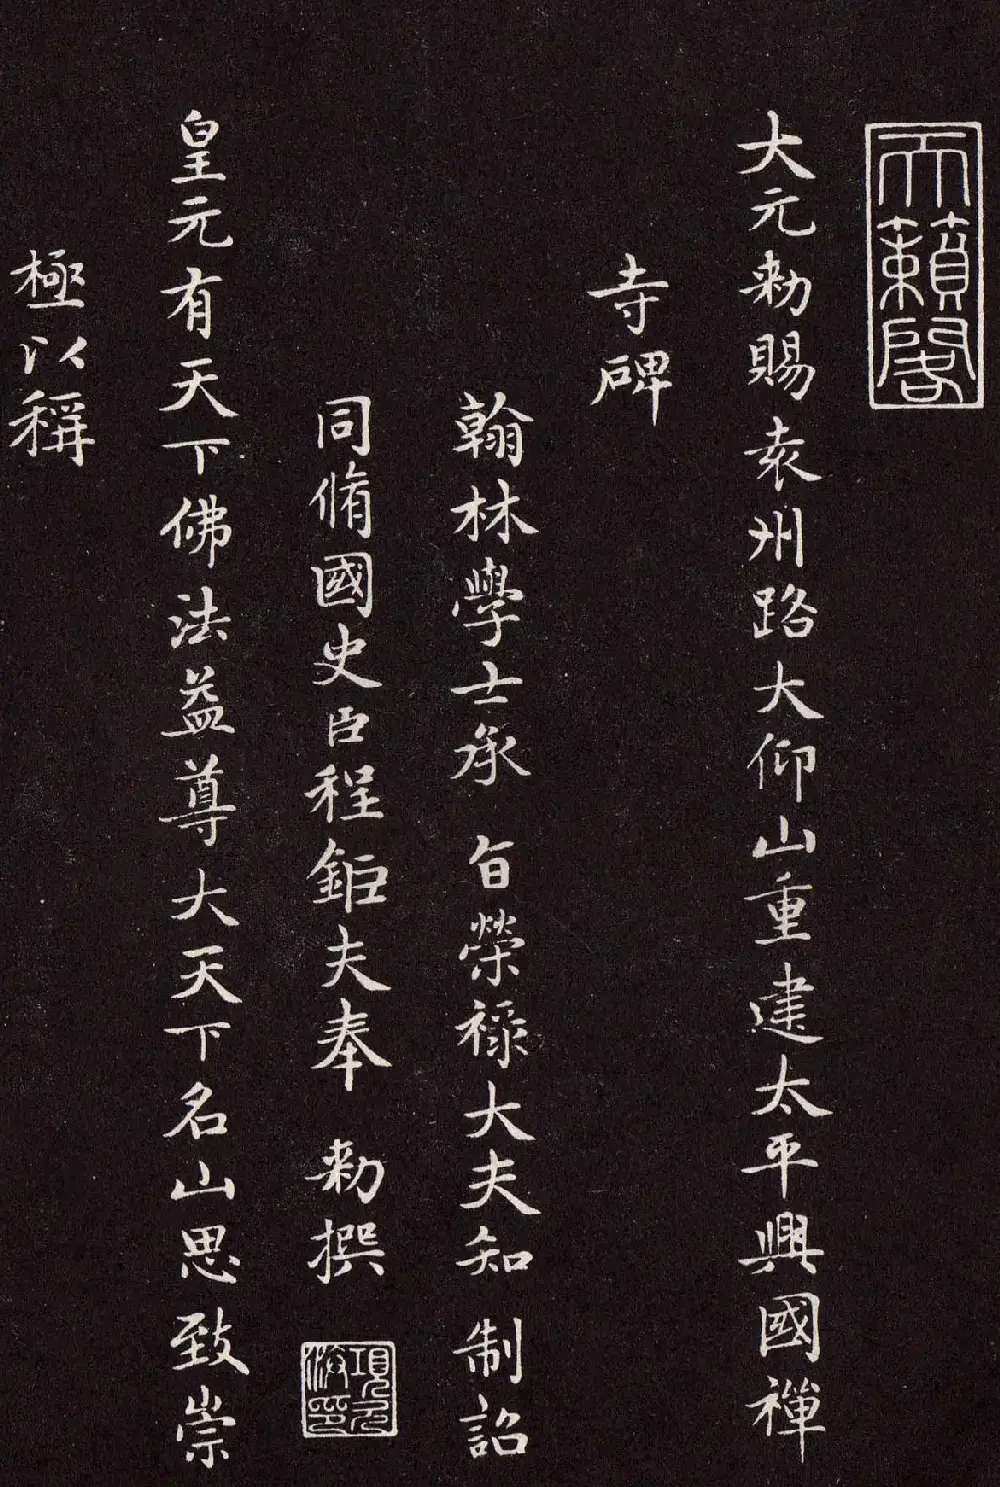 天籟閣
大元勑賜袁州路大仰山重建太平興國禪
寺碑
翰林學士承旨榮祿大夫知制詔
同脩國史臣程鉅夫奉勑撰
項元汴印
皇元有天下佛法益尊大天下名山思致崇
極以稱